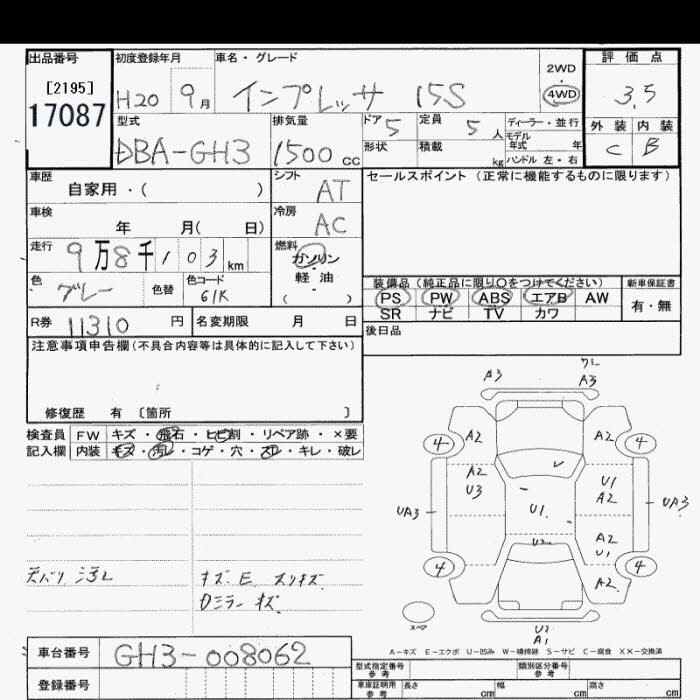 出品番号
[2195]
17087
初度登録年月
H20 9月
車名・グレード
インプレッサ 15S
2WD
4WD
評価点
3.5
外装 内装
C B
型式
DBA-GH3
排気量
1500 cc
ドア 5
形状
定員 5人
積載 kg
ディーラー・並行
モデル年式 年
ハンドル 左・右
車歴
自家用・( )
シフト
AT
セールスポイント (正常に機能するものに限ります)
車検
年 月( 日)
冷房
AC
走行
9万8千103km
燃料
ガソリン
・
軽油
( )
色
グレー
色替
色コード
61K
装備品(純正品に限り〇をつけてください)
PS PW ABS エアB AW
SR ナビ TV カワ
新車保証書
有・無
R券 11310 円
名変期限 月 日
後日品
注意事項申告欄(不具合内容等は具体的に記入して下さい)
修復歴 有 〔箇所 〕
検査員
記入欄
FW キズ・飛石・ヒビ割・リペア跡・×要
内装 キズ・汚レ・コゲ・穴・スレ・キレ・破レ
A3
A3
A2
A2
4
4
A2
U3
U1
A2
UA3
UA3
U1
A2
U1
4
4
A2
U2
A1
スペア
キズ E
Dミラー キズ
A-キズ E-エクボ U-凹み W-補修跡 S-サビ C-腐食 XX-交換済
車台番号
GH3-008062
登録番号
型式指定番号
参考
類別区分番号
参考
車庫証明用
参考
長さ cm
幅 cm
高さ cm